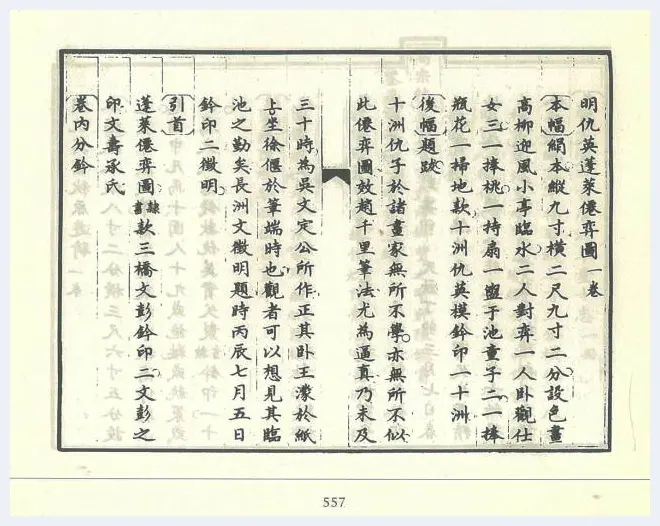 明仇英蓬萊僊弈圖一卷
本幅絹本縱九寸橫二尺九寸二分設色畫
高柳迎風小亭臨水二人對弈一人卧觀仕
女三一捧桃一持扇一盥于池童子二一捧
瓶花一掃地款十洲仇英模鈐印一十洲
後幅題跋
十洲仇子於諸畫家無所不學亦無所不似
此僊弈圖效趙千里筆法尤為逼真乃未及
三十時為吳文定公所作正其卧王濛於紙
上坐徐偃於筆端時也觀者可以想見其臨
池之勤矣長洲文徵明題時丙辰七月五日
鈐印二徵明
引首
蓬萊僊弈圖隸書款三橋文彭鈐印二文彭之
印文壽承氏
卷內分鈐
557